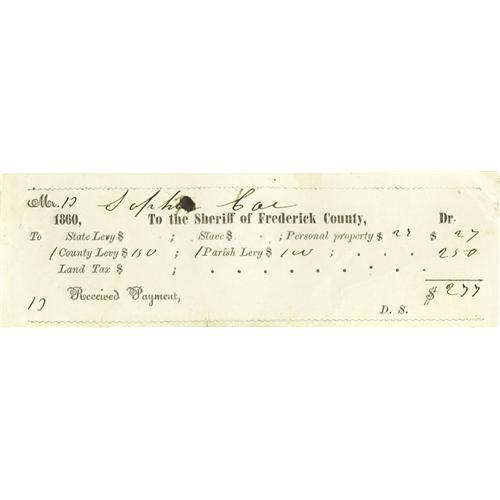 Mr. 13 Sophia Coe
1860, To the Sheriff of Frederick County, Dr.
To State Levy $ ; Slave $ ; Personal property $ 27 $ 27
1 County Levy $ 150 ; 1 Parish Levy $ 100 ; . . . . 250
Land Tax $ ; . . . . . . . . . .
$ 277
13 Received Payment,
D. S.